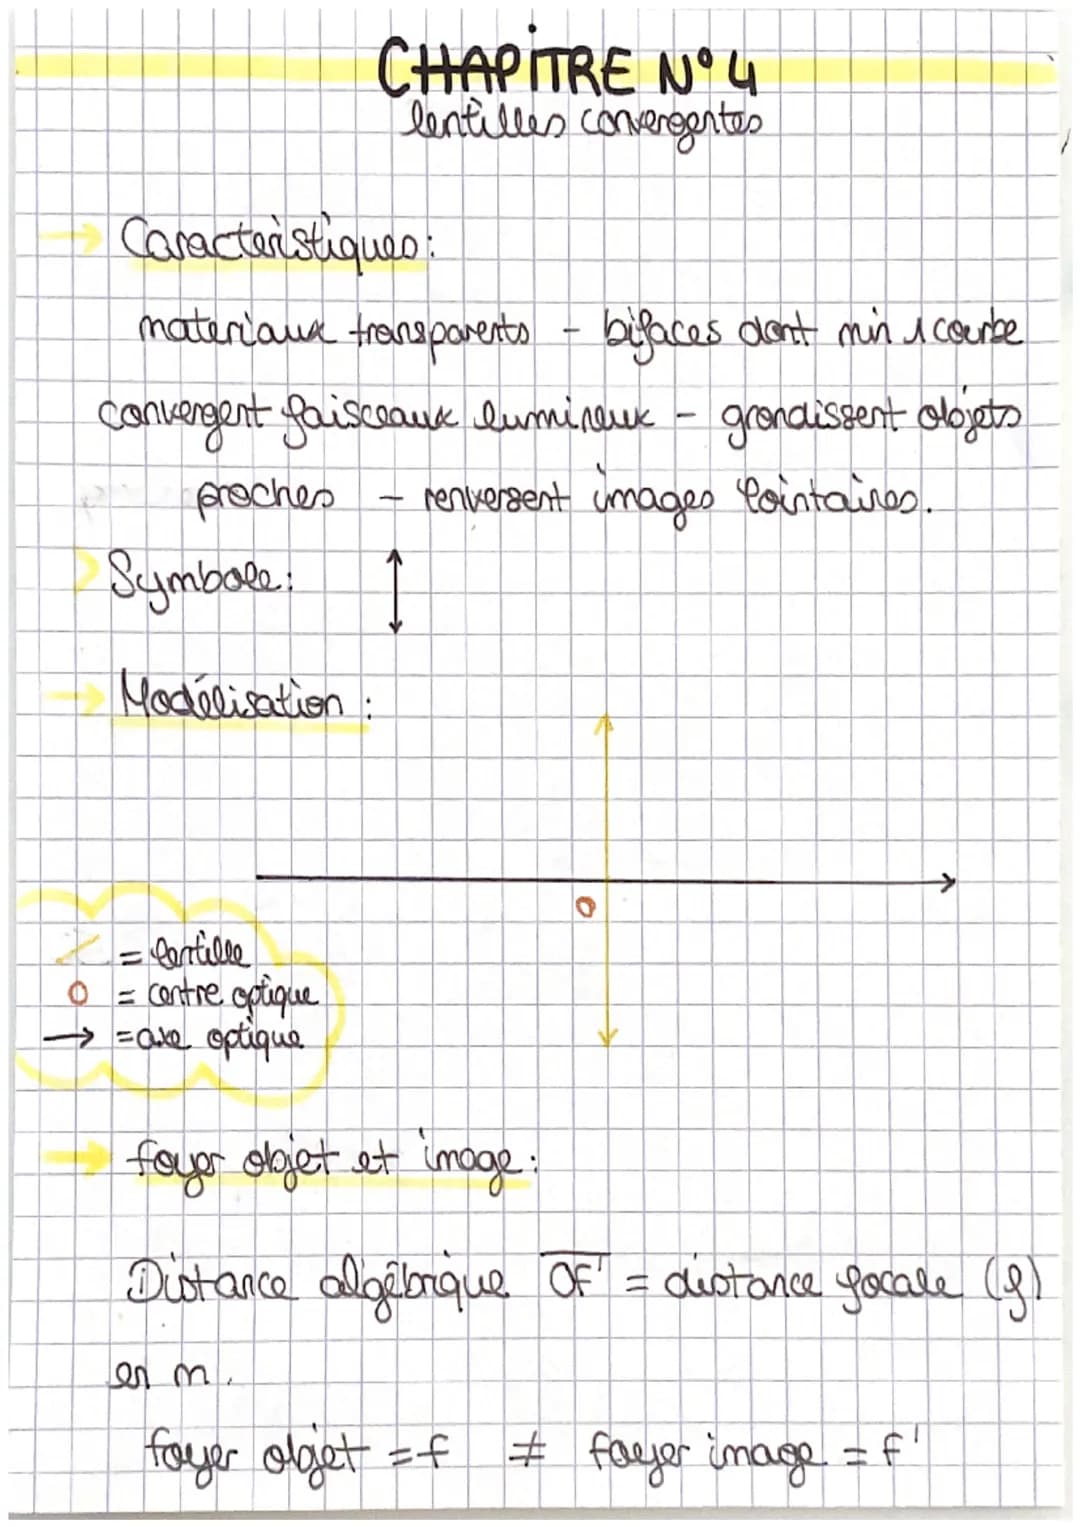 CHAPITRE N°4
lentilles convergentes
→ Caracteristiques:
materiaux transparents - bifaces dont min 1 courbe
convergent faisceaux lumineux - grandissent objets
proches - renversent images lointaires.
> Symbole: ↕
→ Modélisation :
O
= lentille
O = centre optique
→ = axe optique
→ foyer objet et image:
Distance algébrique OF' = distance focale (f)
en m.
foyer objet = f ≠ foyer image = f'